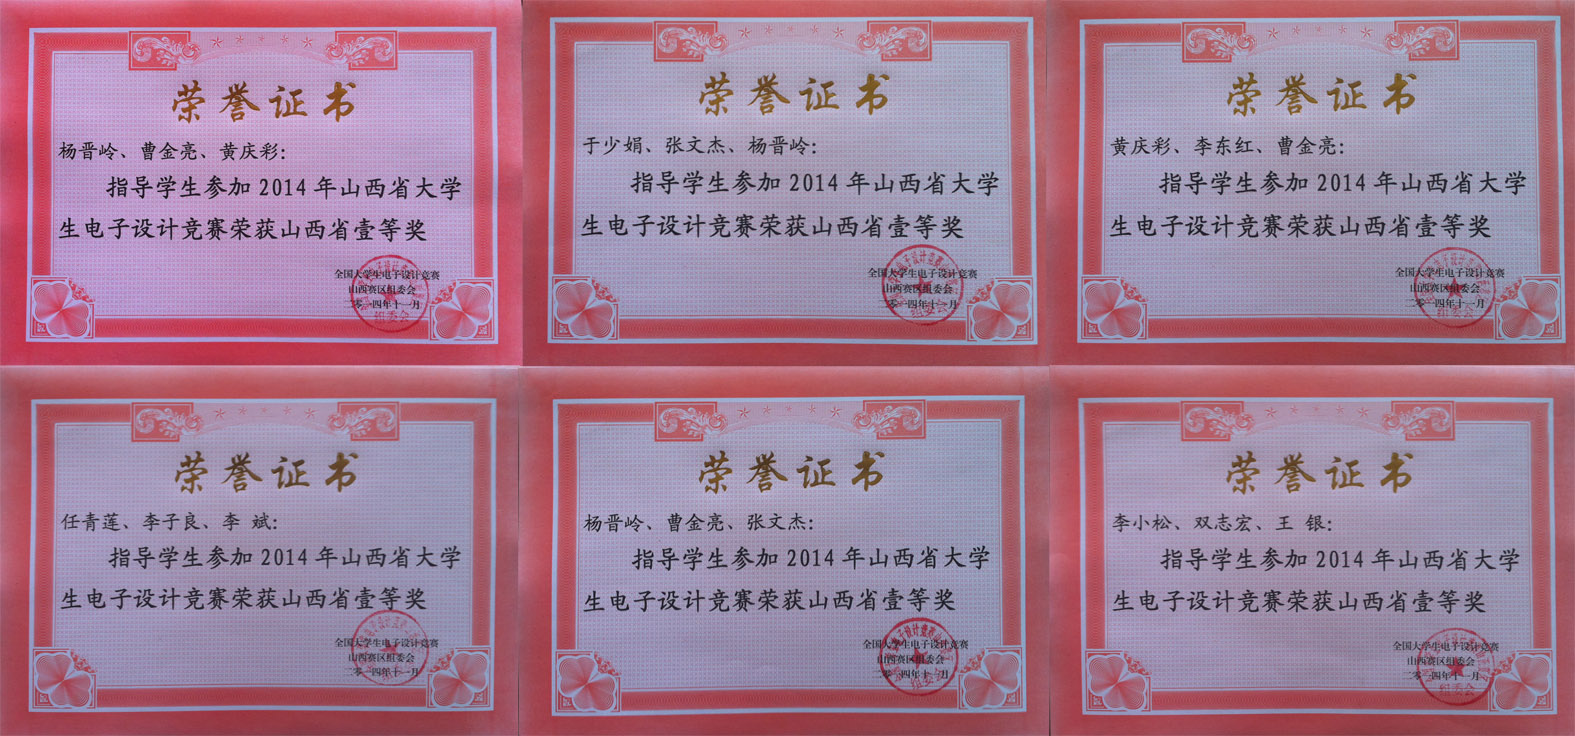 荣誉证书
杨晋岭、曹金亮、黄庆彩:
指导学生参加 2014 年山西省大学
生电子设计竞赛荣获山西省壹等奖
全国大学生电子设计竞赛
山西赛区组委会
二零一四年十一月
组委会
荣誉证书
于少娟、张文杰、杨晋岭:
指导学生参加 2014 年山西省大学
生电子设计竞赛荣获山西省壹等奖
全国大学生电子设计竞赛
山西赛区组委会
二零一四年十一月
组委会
荣誉证书
黄庆彩、李东红、曹金亮:
指导学生参加 2014 年山西省大学
生电子设计竞赛荣获山西省壹等奖
全国大学生电子设计竞赛
山西赛区组委会
二零一四年十一月
组委会
荣誉证书
任青莲、李子良、李 斌:
指导学生参加 2014 年山西省大学
生电子设计竞赛荣获山西省壹等奖
全国大学生电子设计竞赛
山西赛区组委会
二零一四年十一月
荣誉证书
杨晋岭、曹金亮、张文杰:
指导学生参加 2014 年山西省大学
生电子设计竞赛荣获山西省壹等奖
全国大学生电子设计竞赛
山西赛区组委会
二零一四年十一月
组委会
荣誉证书
李小松、双志宏、王 银:
指导学生参加 2014 年山西省大学
生电子设计竞赛荣获山西省壹等奖
全国大学生电子设计竞赛
山西赛区组委会
二零一四年十一月
组委会